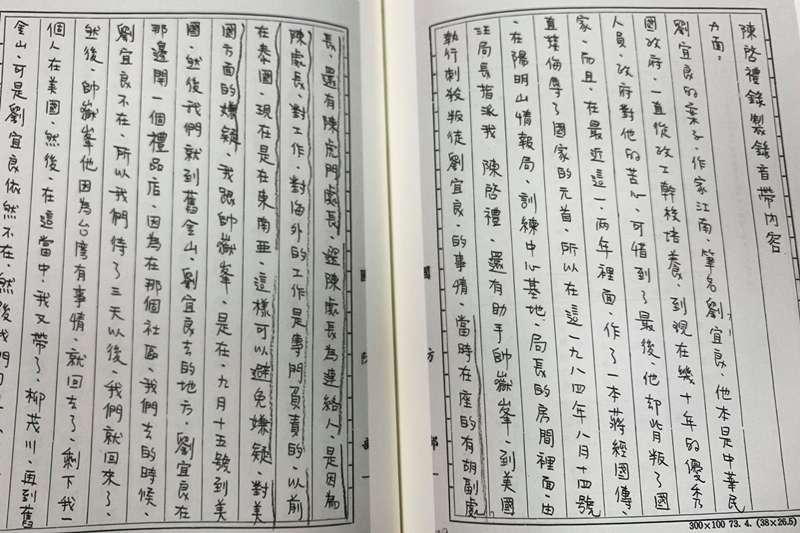 陳啓禮錄製錄音帶內容
方面。
劉宜良的案子、作家江南、筆名劉宜良、他本是中華民
國政府、一直從政工幹校培養、到現在幾十年的優秀
人員、政府對他的苦心、可惜到了最後、他却背叛了國
家、而且、在最近這一、兩年裡面、作了一本蔣經國傳、
直接侮辱了國家的元首、所以在這一九八四年八月十四號
、在陽明山情報局、訓練中心基地、局長的房間裡面、由
汪局長指派我 陳啓禮、還有助手帥嶽峯、到美國
執行刺殺叛徒劉宜良、的事情、當時在座的有胡副處
長、還有陳虎門處長、選陳處長為連絡人、是因為
陳處長、對工作、對海外的工作是專門負責的、以前
在泰國、現在是在東南亞、這樣可以避免嫌疑、對美
國方面的嫌疑、我跟帥嶽峯、是在、九月十五號到美
國、然後我們就到舊金山、劉宜良去的地方、劉宜良在
那邊開一個禮品店、因為在那個社區、我們去的時候、
劉宜良不在、所以我們待了三天以後、我們就回來了、
然後、帥嶽峯他因為台灣有事情、就回去了、剩下我一
個人在美國、然後、在這當中、我又帶了、柳茂川、再到舊
金山、可是劉宜良依然不在、然後我們
300×100 73.4. (38×26.5)